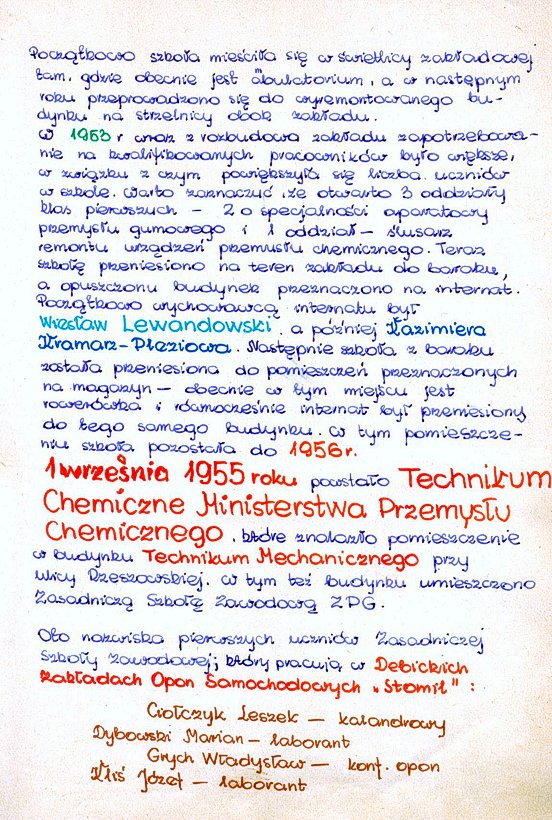 Początkowo szkoła mieściła się w świetlicy zakładowej
tam, gdzie obecnie jest ambulatorium, a w następnym
roku przeprowadzono się do wyremontowanego bu-
dynku na strzelnicy obok zakładu.
W 1953 r wraz z rozbudową zakładu zapotrzebowa-
nie na kwalifikowanych pracowników było większe,
w związku z czym powiększyła się liczba uczniów
w szkole. Warto zaznaczyć, że otwarto 3 oddziały
klas pierwszych – 2 o specjalności aparatowy
przemysłu gumowego i 1 oddział – ślusarz
remontu urządzeń przemysłu chemicznego. Teraz
szkołę przeniesiono na teren zakładu do baraku,
a opuszczony budynek przeznaczono na internat.
Początkowo wychowawcą internatu był
Wiesław Lewandowski, a później Kazimiera
Kramarz-Pleziowa. Następnie szkoła z baraku
została przeniesiona do pomieszczeń przeznaczonych
na magazyn – obecnie w tym miejscu jest
rowerówka i równocześnie internat był przeniesiony
do tego samego budynku. W tym pomieszcze-
niu szkoła pozostała do 1956 r.
1 września 1955 roku powstało Technikum
Chemiczne Ministerstwa Przemysłu
Chemicznego, które znalazło pomieszczenie
w budynku Technikum Mechanicznego przy
ulicy Rzeszowskiej. W tym też budynku umieszczono
Zasadniczą Szkołę Zawodową ZPG.
Oto nazwiska pierwszych uczniów Zasadniczej
Szkoły Zawodowej, którzy pracują w Dębickich
Zakładach Opon Samochodowych „Stomil" :
Ciołczyk Leszek – kalandrowy
Dybowski Marian – laborant
Grych Władysław – konf. opon
Kliś Józef – laborant